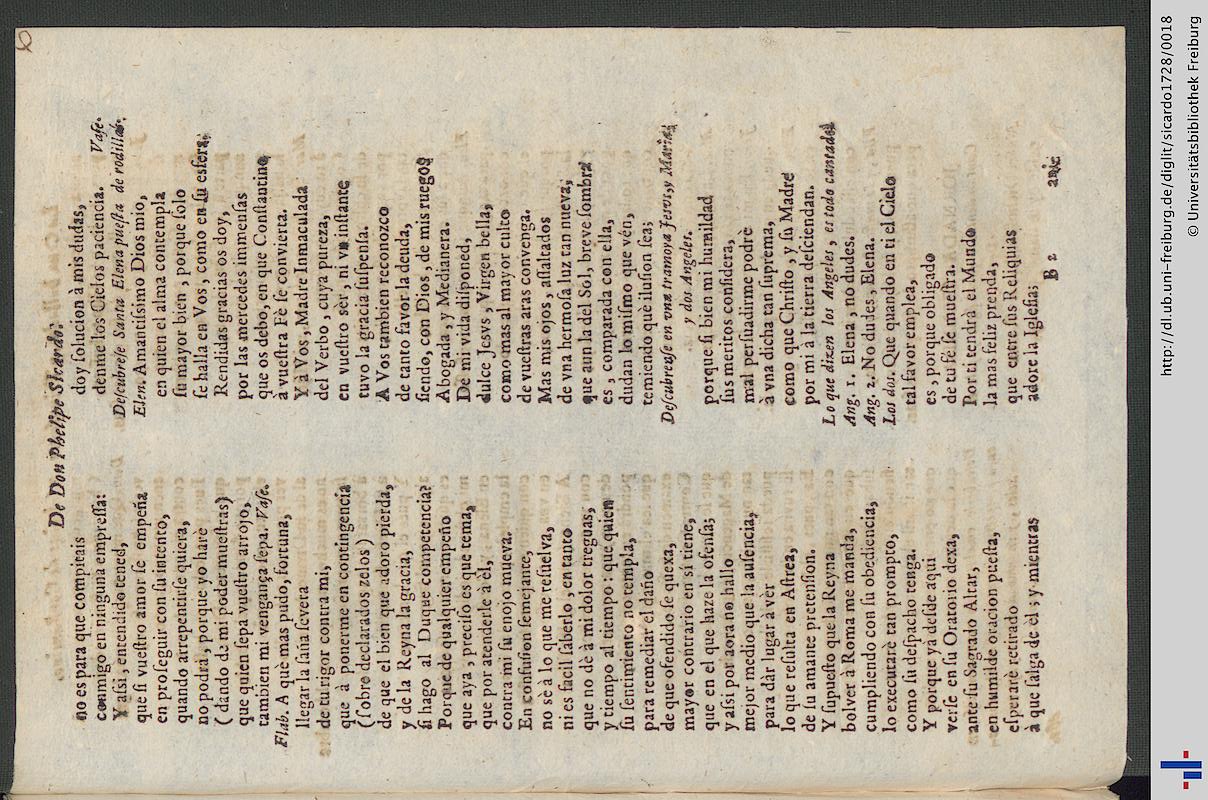 6
De Don Phelipe Sicardo.
no es para que compitais
conmigo en ninguna empressa:
Y assi, entendido tened,
que si vuestro amor se empeña
en proseguir con su intento,
quando arrepentirse quiera,
no podrà, porque yo harè
(dando de mi poder muestras)
que quien sepa vuestro arrojo,
tambien mi vengança sepa. Vase.
Flab. A què mas pudo, fortuna,
llegar la saña severa
de tu rigor contra mi,
que à ponerme en contingencia
(sobre declarados zelos)
de que el bien que adoro pierda,
y de la Reyna la gracia,
si hago al Duque competencia?
Porque de qualquier empeño
que aya, preciso es que tema,
que por atenderle à èl,
contra mi su enojo mueva.
En confusion semejante,
no sè à lo que me resuelva,
ni es facil saberlo, en tanto
que no dè à mi dolor treguas,
y tiempo al tiempo: que quien
su sentimiento no templa,
para remediar el daño
de que ofendido se quexa,
mayor contrario en sì tiene,
que en el que haze la ofensa;
y assi por aora no hallo
mejor medio que la ausencia,
para dàr lugar à vèr
lo que resulta en Astrea,
de su amante pretension.
Y supuesto que la Reyna
bolver à Roma me manda,
cumpliendo con su obediencia,
lo executarè tan prompto,
como su despacho tenga.
Y porque ya desde aqui
verse en su Oratorio dexa,
ante su Sagrado Altar,
en humilde oracion puesta,
esperarè retirado
à que salga de èl; y mientras
doy solucion à mis dudas,
denme los Cielos paciencia. Vase.
Descubrese Santa Elena puesta de rodillas.
Elen. Amantissimo Dios mio,
en quien el alma contempla
su mayor bien, porque solo
se halla en Vos, como en su esfera,
Rendidas gracias os doy,
por las mercedes immensas
que os debo, en que Constantino
à vuestra Fè se convierta.
Y à Vos, Madre Inmaculada
del Verbo, cuya pureza,
en vuestro ser, ni vn instante
tuvo la gracia suspensa.
A Vos tambien reconozco
de tanto favor la deuda,
siendo, con Dios, de mis ruegos
Abogada, y Medianera.
De mi vida disponed,
dulce Jesvs, Virgen bella,
como mas al mayor culto
de vuestras aras convenga.
Mas mis ojos, assaltados
de vna hermosa luz tan nueva,
que aun la del Sol, breve sombra
es, comparada con ella,
dudan lo mismo que vèn,
temiendo què ilusion sea;
Descubrense en vna tramoya Jesvs, y Maria,
y dos Angeles.
porque si bien mi humildad
sus meritos considera,
mal persuadirme podrè
à vna dicha tan suprema,
como que Christo, y su Madre
por mi à la tierra desciendan.
Lo que dizen los Angeles, es todo cantado.
Ang. 1. Elena, no dudes.
Ang. 2. No dudes, Elena.
Los dos. Que quando en ti el Cielo
tal favor emplea,
es, porque obligado
de tu fè se muestra.
Por ti tendrà el Mundo
la mas feliz prenda,
que entre sus Reliquias
adore la Iglesia;
B 2
http://dl.ub.uni-freiburg.de/diglit/sicardo1728/0018
© Universitätsbibliothek Freiburg